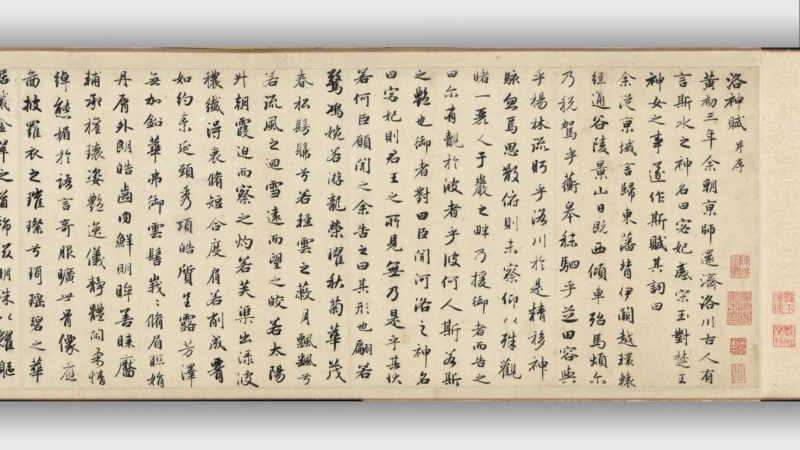 洛神賦 并序
黄初三年余朝京師還濟洛川古人有
言斯水之神名曰宓妃感宋玉對楚王
神女之事遂作斯賦其詞曰
余從京域言歸東藩背伊闕越轘轅
經通谷陵景山日既西傾車殆馬煩爾
乃税駕乎蘅皋秣駟乎芝田容與
乎楊林流眄乎洛川於是精移神
駭忽焉思散俯則未察仰以殊觀
睹一麗人于巖之畔乃援御者而告之
曰爾有覿於彼者乎彼何人斯若斯
之豔也御者對曰臣聞河洛之神名
曰宓妃則君王之所見無乃是乎其狀
若何臣願聞之余告之曰其形也翩若
驚鴻婉若游龍榮曜秋菊華茂
春松髣髴兮若輕雲之蔽月飄飄兮
若流風之迴雪遠而望之皎若太陽
升朝霞迫而察之灼若芙蕖出淥波
穠纖得衷脩短合度肩若削成腰
如約素延頸秀項皓質呈露芳澤
無加鉛華弗御雲髻峩〻脩眉聯娟
丹脣外朗皓齒内鮮明眸善睞靨
輔承權瓌姿豔逸儀靜體閑柔情
綽態媚於語言奇服曠世骨像應
圖披羅衣之璀璨兮珥瑤碧之華
琚戴金翠之首飾綴明珠以耀軀